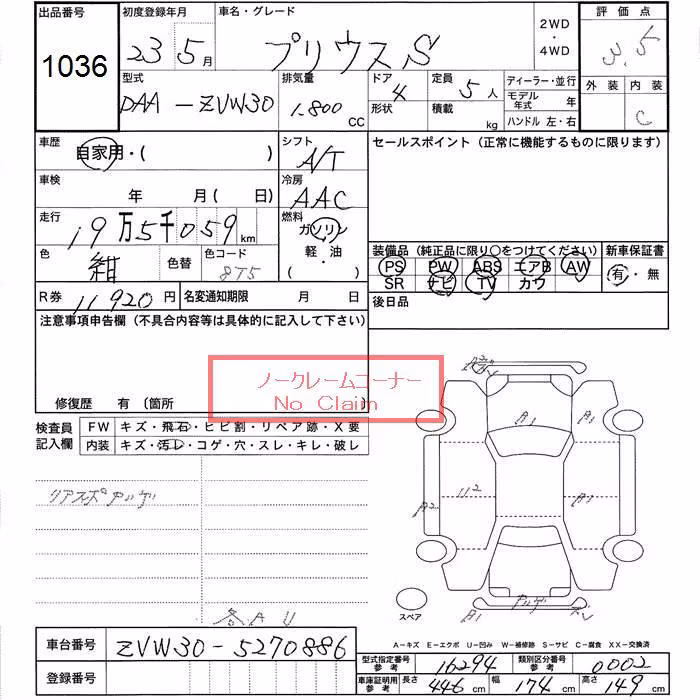 出品番号 初度登録年月 車名・グレード 2WD ・ 4WD 評価点
1036 23 5月 プリウス S 3.5
型式 排気量 ドア 定員 ディーラー・並行 外装 内装
DAA-ZVW30 1.800 CC 4 5人 モデル年式 年 C
形状 積載 kg ハンドル 左・右
車歴 自家用・( ) シフト A/T セールスポイント (正常に機能するものに限ります)
車検 年 月 ( 日) 冷房 AAC
走行 19万5千059km 燃料 ガソリン
色 紺 色替 色コード 8T5 軽・油 ( ・ )
装備品 (純正品に限り○をつけてください) 新車保証書
PS PW ABS エアB AW 有・無
SR ナビ TV カワ
R券 11920円 名変通知期限 月 日 後日品
注意事項申告欄 (不具合内容等は具体的に記入して下さい)
ノークレームコーナー
No Claim
修復歴 有 〔箇所
検査員記入欄 FW キズ・飛石・ヒビ割・リペア跡・X要
内装 キズ・汚レ・コゲ・穴・スレ・キレ・破レ
A1
A1
A2
A1
スペア
A1
各A U
A-キズ E-エクボ U-凹み W-補修跡 S-サビ C-腐食 XX-交換済
車台番号 ZVW30-5270886
型式指定番号 参考 16294 類別区分番号 参考 0002
登録番号
車庫証明用 参考 長さ 446cm 幅 174cm 高さ 149cm